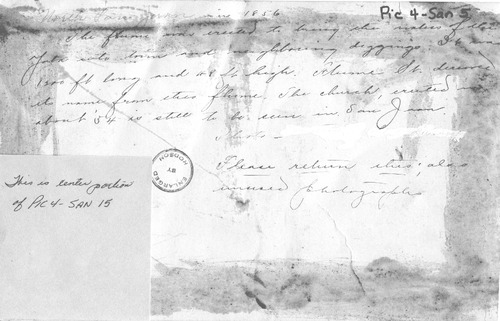 Pic 4-San 5
North San Juan in 1856
The flume was erected to bring the waters of
into town and neighboring diggings. It was
1300 ft long and 48 ft high. Flume St. derives
its name from this flume. The church, erected
about '54 is still to be seen in San Juan.
Please return this; also
unused photographs
ENLARGED BY HODSON
This is center portion
of Pic 4-SAN 15